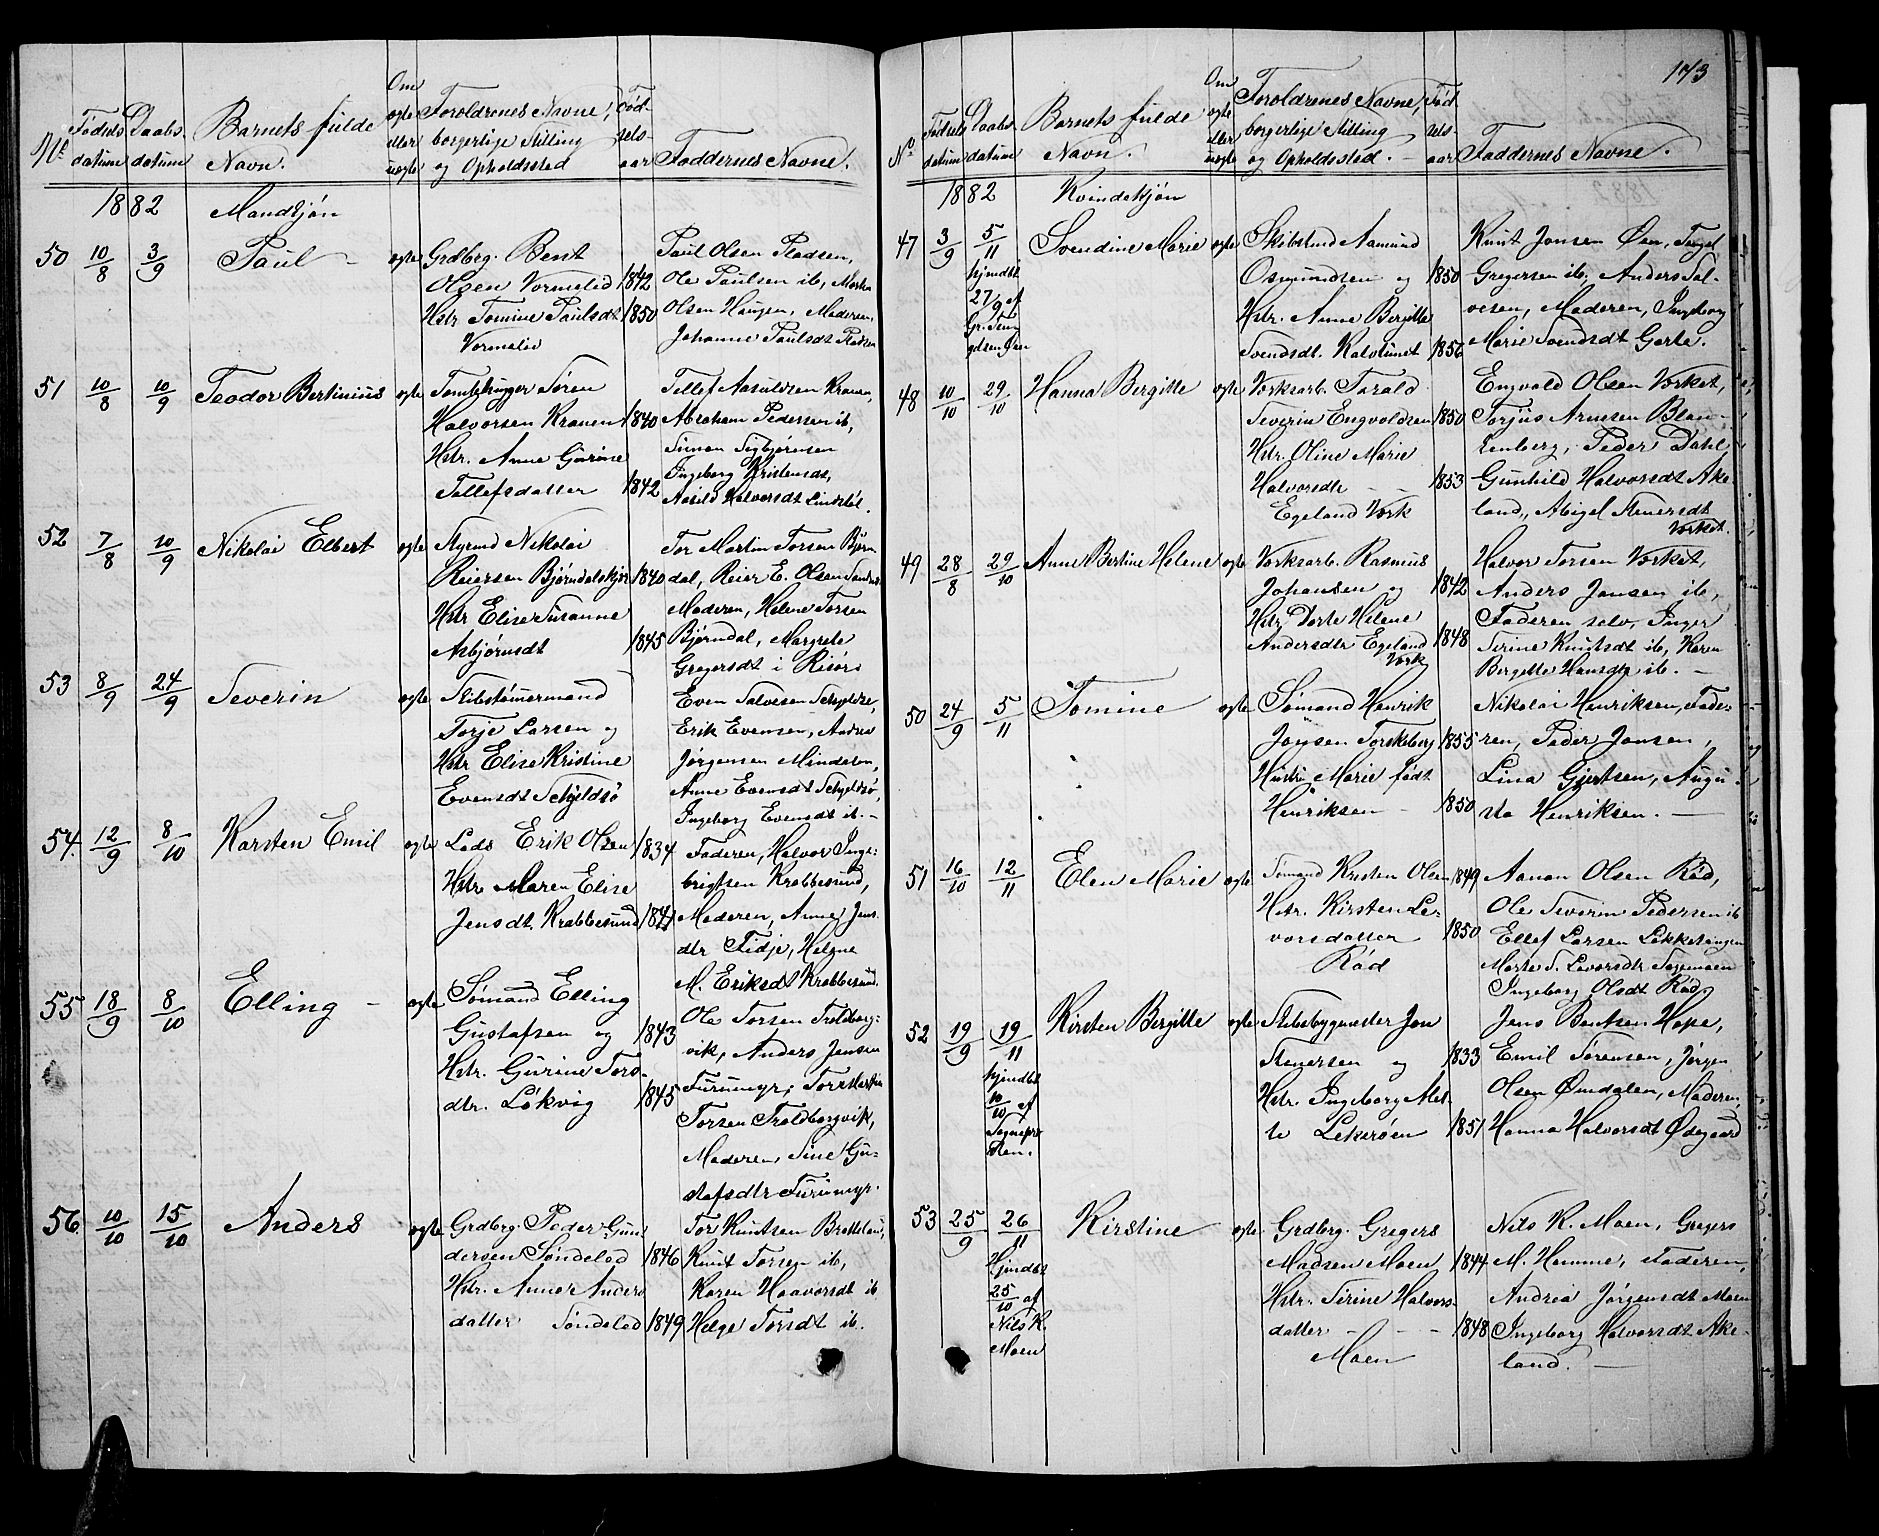 Nº | Fødsels datum | Daabs datum | Barnets fulde Navn. | Om ægte eller uægte | Forældrenes Navne, borgerlige Stilling og Opholdssted | Fødselsaar | Faddernes Navne.
1882 Mandkjøn
50 10/8 3/9 Paul – ægte
Grdbrg. Bent
Olsen Vormelid 1842
Hstr. Tomine Paulsdt 1850
Vormelid
Paul Olsen Pladsen,
Ole Paulsen ib,
Olsen Haugen, Moderen,
Johanne Paulsdt Pladsen
51 10/8 10/9 Teodor Bertinius ægte
Tømthugger Søren
Halvorsen Kranen 1840
Hstr. Anne Gurine
Tellefsdatter 1842
Tellef Aasuldsen Kranen,
Abraham Pedersen ib,
Simon Sigbjørnsen
Ingeborg Kristensdt,
Aasild Halvorsdt Lindstøl.
52 7/8 10/9 Nikolai Elbert ægte
Styrmd Nikolai
Reiersen Bjørndalskjær 1840
Hstr Elise Susanne
Asbjørnsdt 1845
Tor Martin Torsen Bjørndal,
Reier E. Olsen
Moderen, Helene Torsen
Bjørndal, Margrete
Gregersdt i Risør.
53 8/9 24/9 Severin ægte
Skibstømermand
Torje Larsen og
Hstr Elise Kristine
Evensdt Schjeldsø
Even Salvesen Schjeldsø,
Erik Evensen, Andreas
Jørgensen Mindalen,
Anne Evensdt Schjeldsø,
Ingeborg Evensdt ib. –
54. 12/9 8/10 Karsten Emil ægte
Lods Erik Olsen 1834
Hstr Maren Elise
Jensdt Krabbesund 1841
Faderen, Halvor Inge-
brigtsen Krabbesund,
Moderen, Anne Jens-
dtr Fidje, Helene
M. Eriksdt Krabbesund.
55 18/9 8/10 Elling – ægte
Sømand Elling
Gustafsen og 1843
Hstr. Gurine Tors-
dtr. Løkvig 1845
Ole Torsen Troldberg-
vik, Anders Jensen
Furumyr,
Torsen Troldbergvik,
Moderen, Sine Gu-
stafsdtr Furumyr.
56. 10/10 15/10 Anders ægte
Grdbrg. Peder Gun-
dersen Søndeled 1846
Hstr. Anne Anders
datter Søndeled 1849
Tor Knutsen Brattland,
Knut Torsen ib,
Karen Haavorsdt ib
Helge Torsdt ib.
173
Nº | Fødsels datum | Daabs datum | Barnets fulde Navn. | Om ægte eller uægte | Forældrenes Navne, borgerlige Stilling og Opholdssted. – | Fødselsaar | Faddernes Navne.
1882 Kvindekjøn
47 3/9 5/11 Svendine Marie ægte
hjmdbt
27/9 af
Skibstmd Aamund
Osmundsen og 1850
Hstr. Anne Bergitte
Svendsdt. Kalstunet 1856
Knut Jonsen Øen, Tergel
Gregersen ib, Anders Sal-
vesen, Moderen, Ingeborg
Marie Svendsdt Garte.
48 10/10 29/10 Hanna Bergitte ægte
Værksarb. Tarald
Severin Engvoldsen 1850
Hstr. Oline Marie
Halvorsdtr – – 1853
Egeland Værk
Engvold Olsen Værket,
Torjus Arnesen Blan-
kenberg, Peder Dahl
Gunhild Halvorsdt Ake-
land, Abigel Stenersdt
Værket.
49 28/8 29/10 Anne Bertine Helene ægte
Værksarb. Rasmus
Johansen og 1842
Hstr Dorte Helene
Andersdtr Egeland 1848
Værk
Halvor Torsen Værket,
Anders Jensen ib,
Faderen selv, Inger
Sirine Knutsdt ib, Karen
Bergitte Hansdtr ib. –
50 24/9 5/11 Tomine ægte
Sømand Henrik
Jonsen Torskeberg 1855
Hustru Marie født
Henriksen – 1850
Nikolai Henriksen, Fade-
ren, Peder Jonsen,
Lina Gjertsen, Augu-
sta Henriksen. –
51 16/10 12/11 Elen Marie ægte
Sømand Kristen Olsen 1849
Hstr. Kirsten Le-
vorsdatter 1850
Rød
Aanon Olsen Rød,
Ole Severin Pedersen ib
Ellef Larsen Løkketangen
Marte S. Levorsdtr
Ingeborg Olsdt Rød
52 19/9 19/11 Kirsten Bergitte ægte
hjmdbt
10/10 af
Sognepre-
sten.
Skibsbygmester Jon
Stenersen og 1833
Hstr. Ingeborg Alet-
te Lekerøen 1851
Jens Bentsen Hope,
Emil Sørensen, Jørgen
Olsen Øindalen, Moderen,
Hanna Halvorsdt Ødegaard
53 25/9 26/11 Kirstine ægte
Hjmdbt
25/10 af
Nils K.
Moen
Grdbrg. Gregers
Madsen Moen 1844
Hstr. Sirine Halvors-
datter – – – 1848
Moen
Nils K. Moen, Gregers
M. Hømme, Faderen,
Andrea Jørgensdt Moen
Ingeborg Halvorsdt Ake-
land. –